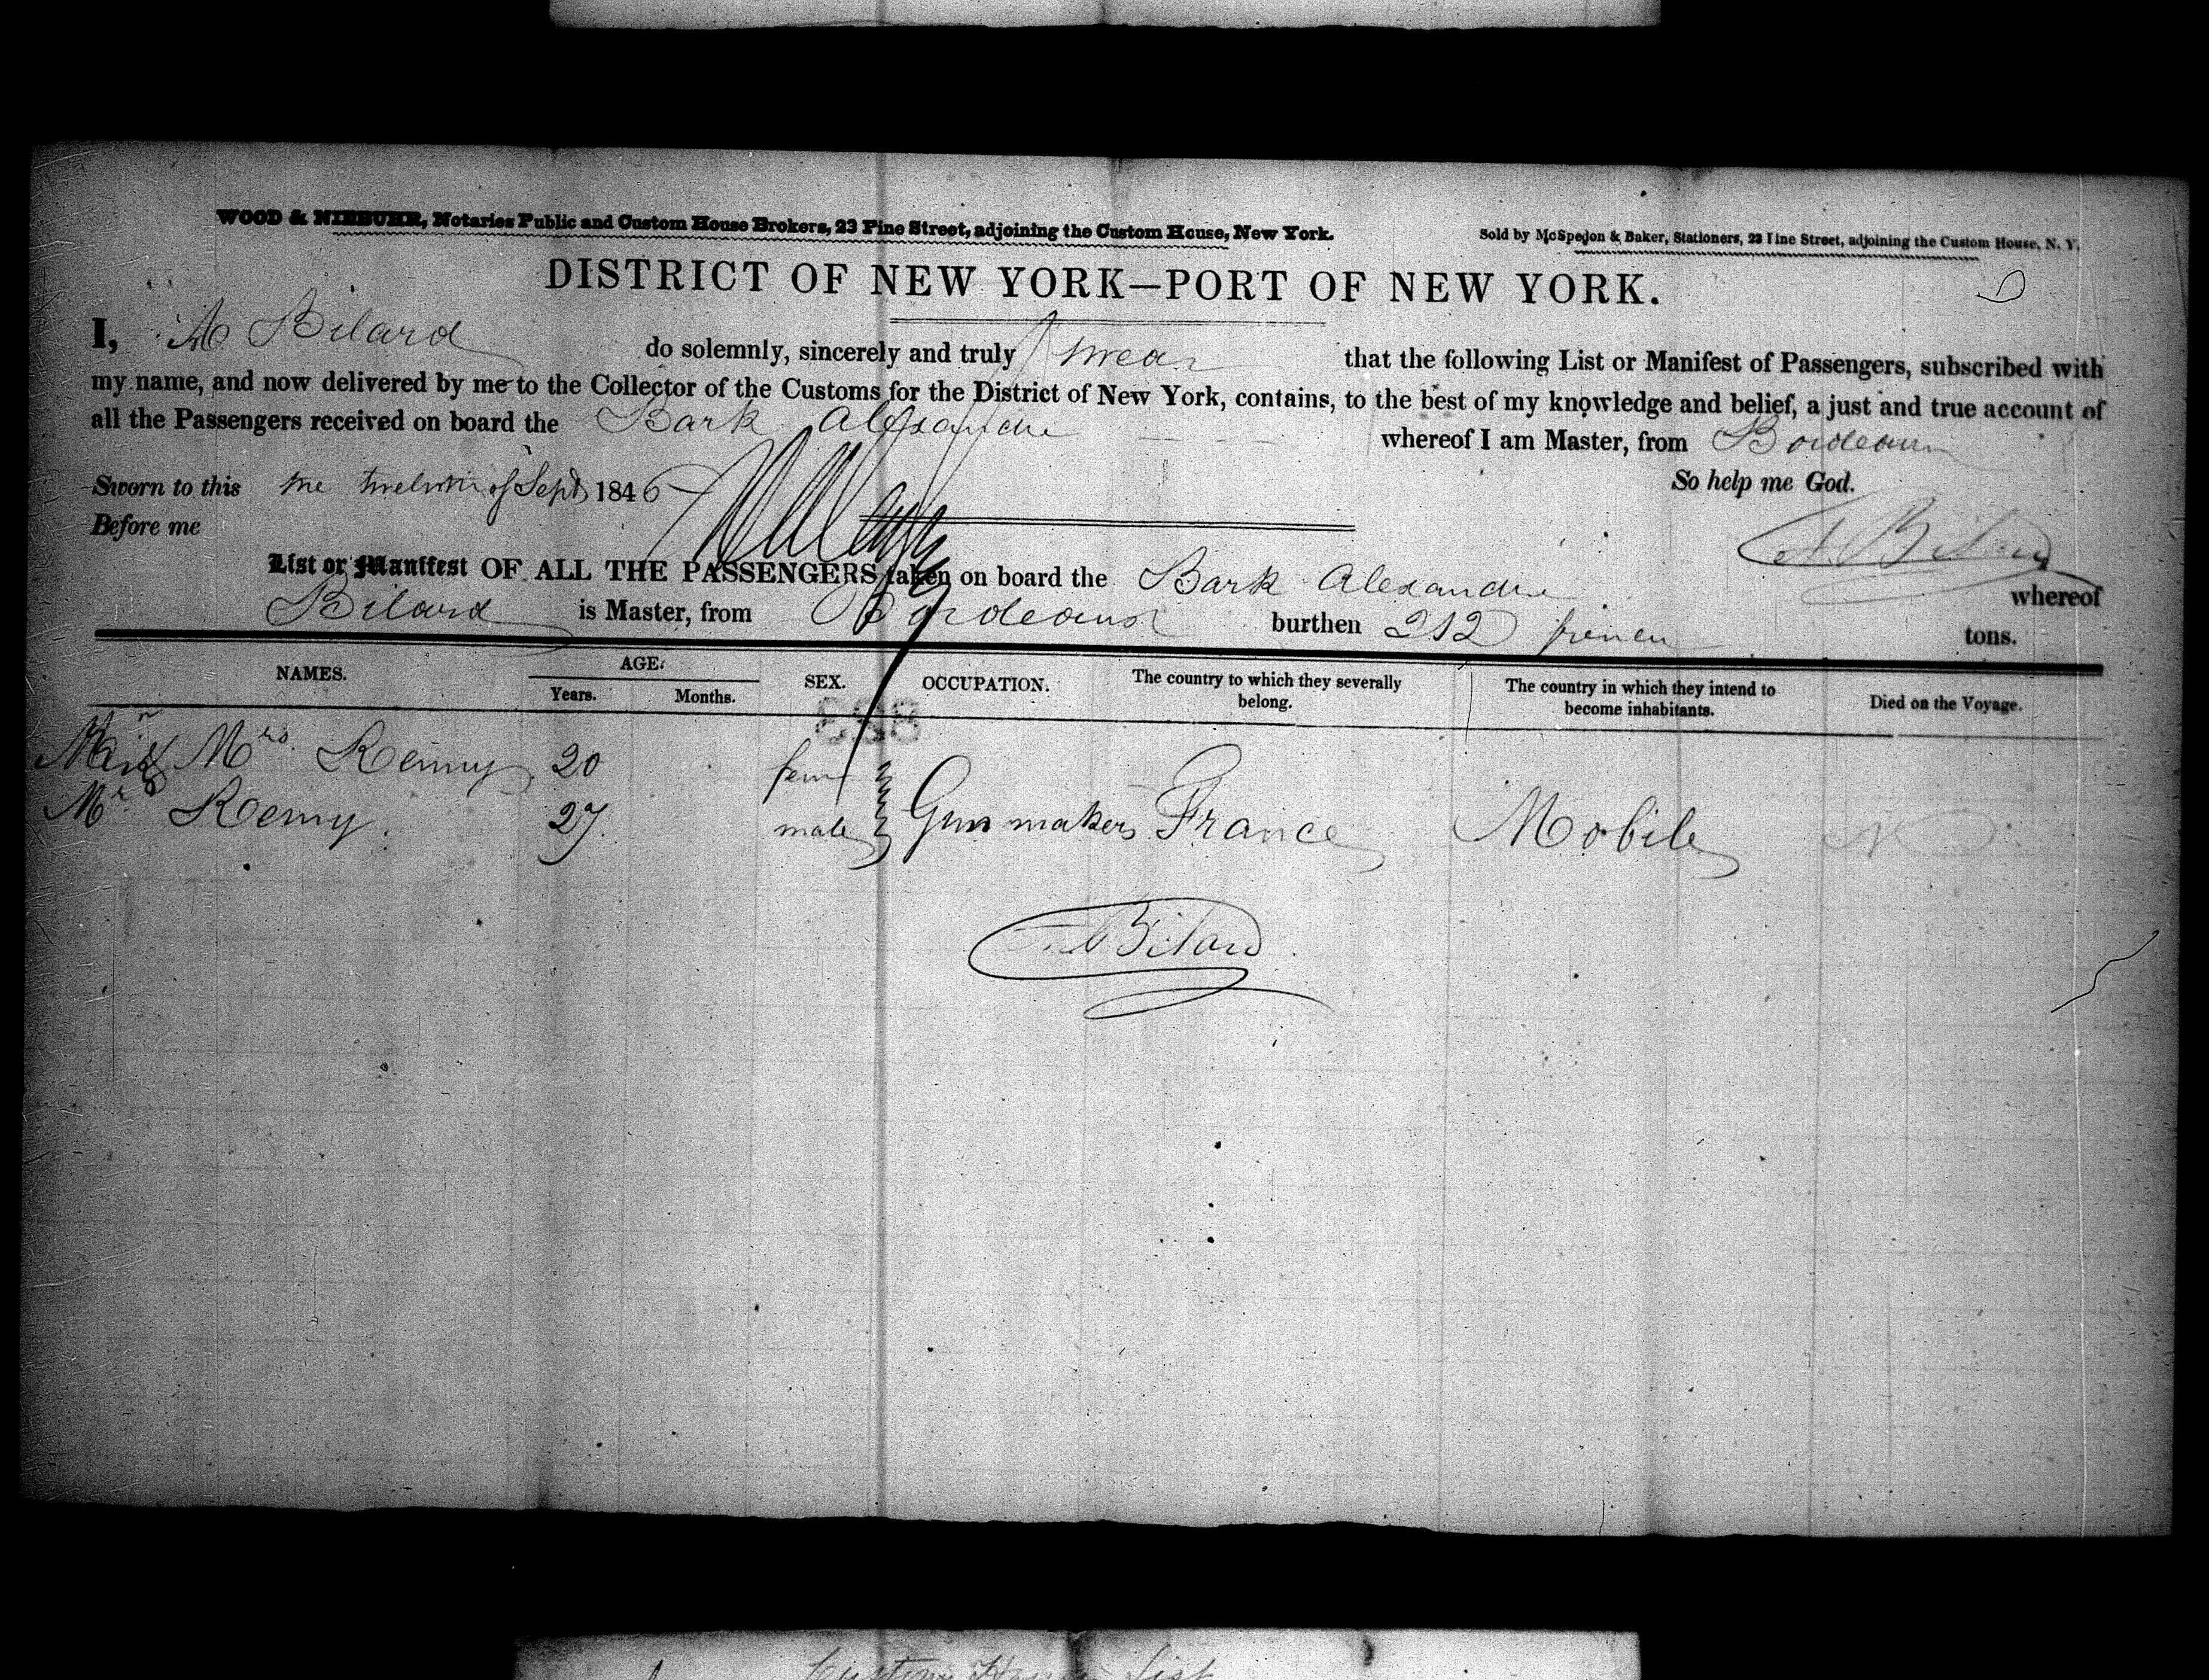 WOOD & NIEBUHR, Notaries Public and Custom House Brokers, 23 Pine Street, adjoining the Custom House, New York.
Sold by McSpedon & Baker, Stationers, 23 Pine Street, adjoining the Custom House, N. Y.
DISTRICT OF NEW YORK—PORT OF NEW YORK.
I, A Bilard do solemnly, sincerely and truly swear that the following List or Manifest of Passengers, subscribed with
my name, and now delivered by me to the Collector of the Customs for the District of New York, contains, to the best of my knowledge and belief, a just and true account of
all the Passengers received on board the Bark Alexandre whereof I am Master, from Bordeaux
Sworn to this the twelvth of Sept 1846 So help me God.
Before me
A Bilard
List or Manifest OF ALL THE PASSENGERS taken on board the Bark Alexandre whereof
Bilard is Master, from Bordeaux burthen 212 french tons.
NAMES. AGE. SEX. OCCUPATION. The country to which they severally belong. The country in which they intend to become inhabitants. Died on the Voyage.
Years. Months.
Mrs Remy 20 fem
Mr Remy. 27. male Gun makers France Mobile
A Bilard
Custom House List